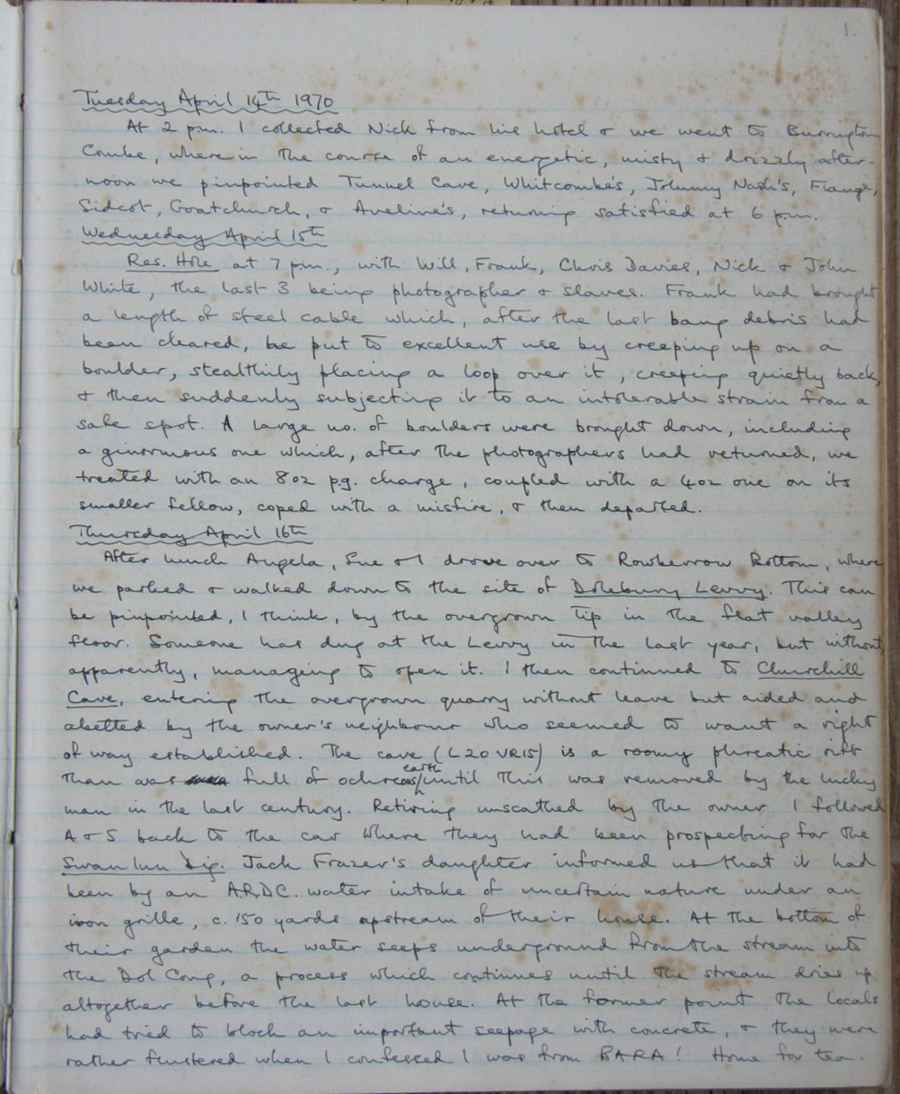 1.
Tuesday April 14th 1970
At 2 pm. I collected Nick from his hotel & we went to Burrington
Combe, where in the course of an energetic, misty & drizzly after-
noon we pinpointed Tunnel Cave, Whitcombe's, Johnny Nash's, Flange,
Sidcot, Goatchurch, & Aveline's, returning satisfied at 6 pm.
Wednesday April 15th
Res. Hole at 7 pm., with Will, Frank, Chris Davies, Nick & John
White, the last 3 being photographer & slaves. Frank had brought
a length of steel cable which, after the last bang debris had
been cleared, he put to excellent use by creeping up on a
boulder, stealthily placing a loop over it, creeping quietly back,
& then suddenly subjecting it to an intolerable strain from a
safe spot. A large no. of boulders were brought down, including
a ginormous one which, after the photographers had returned, we
treated with an 8oz pg. charge, coupled with a 4oz one on its
smaller fellow, coped with a misfire, & then departed.
Thursday April 16th
After lunch Angela, Sue & I drove over to Rowberrow Bottom, where
we parked & walked down to the site of Dolebury Levvy. This can
be pinpointed, I think, by the overgrown tip in the flat valley
floor. Someone has dug at the Levvy in the last year, but without,
apparently, managing to open it. I then continued to Churchill
Cave, entering the overgrown quarry without leave but aided and
abetted by the owner's neighbour who seemed to want a right
of way established. The cave (L20 VR15) is a roomy phreatic rift
than was full of ochreous earth until this was removed by the lucky
men in the last century. Retiring unscathed by the owner I followed
A & S back to the car where they had been prospecting for the
Swan Inn Dig. Jack Frazer's daughter informed us that it had
been by an ARDC. water intake of uncertain nature under an
iron grille, c. 150 yards upstream of their house. At the bottom of
their garden the water seeps underground from the stream into
the Dol Cong, a process which continues until the stream dries up
altogether before the last house. At the former point the locals
had tried to block an important seepage with concrete, & they were
rather flustered when I confessed I was from BARA! Home for tea.